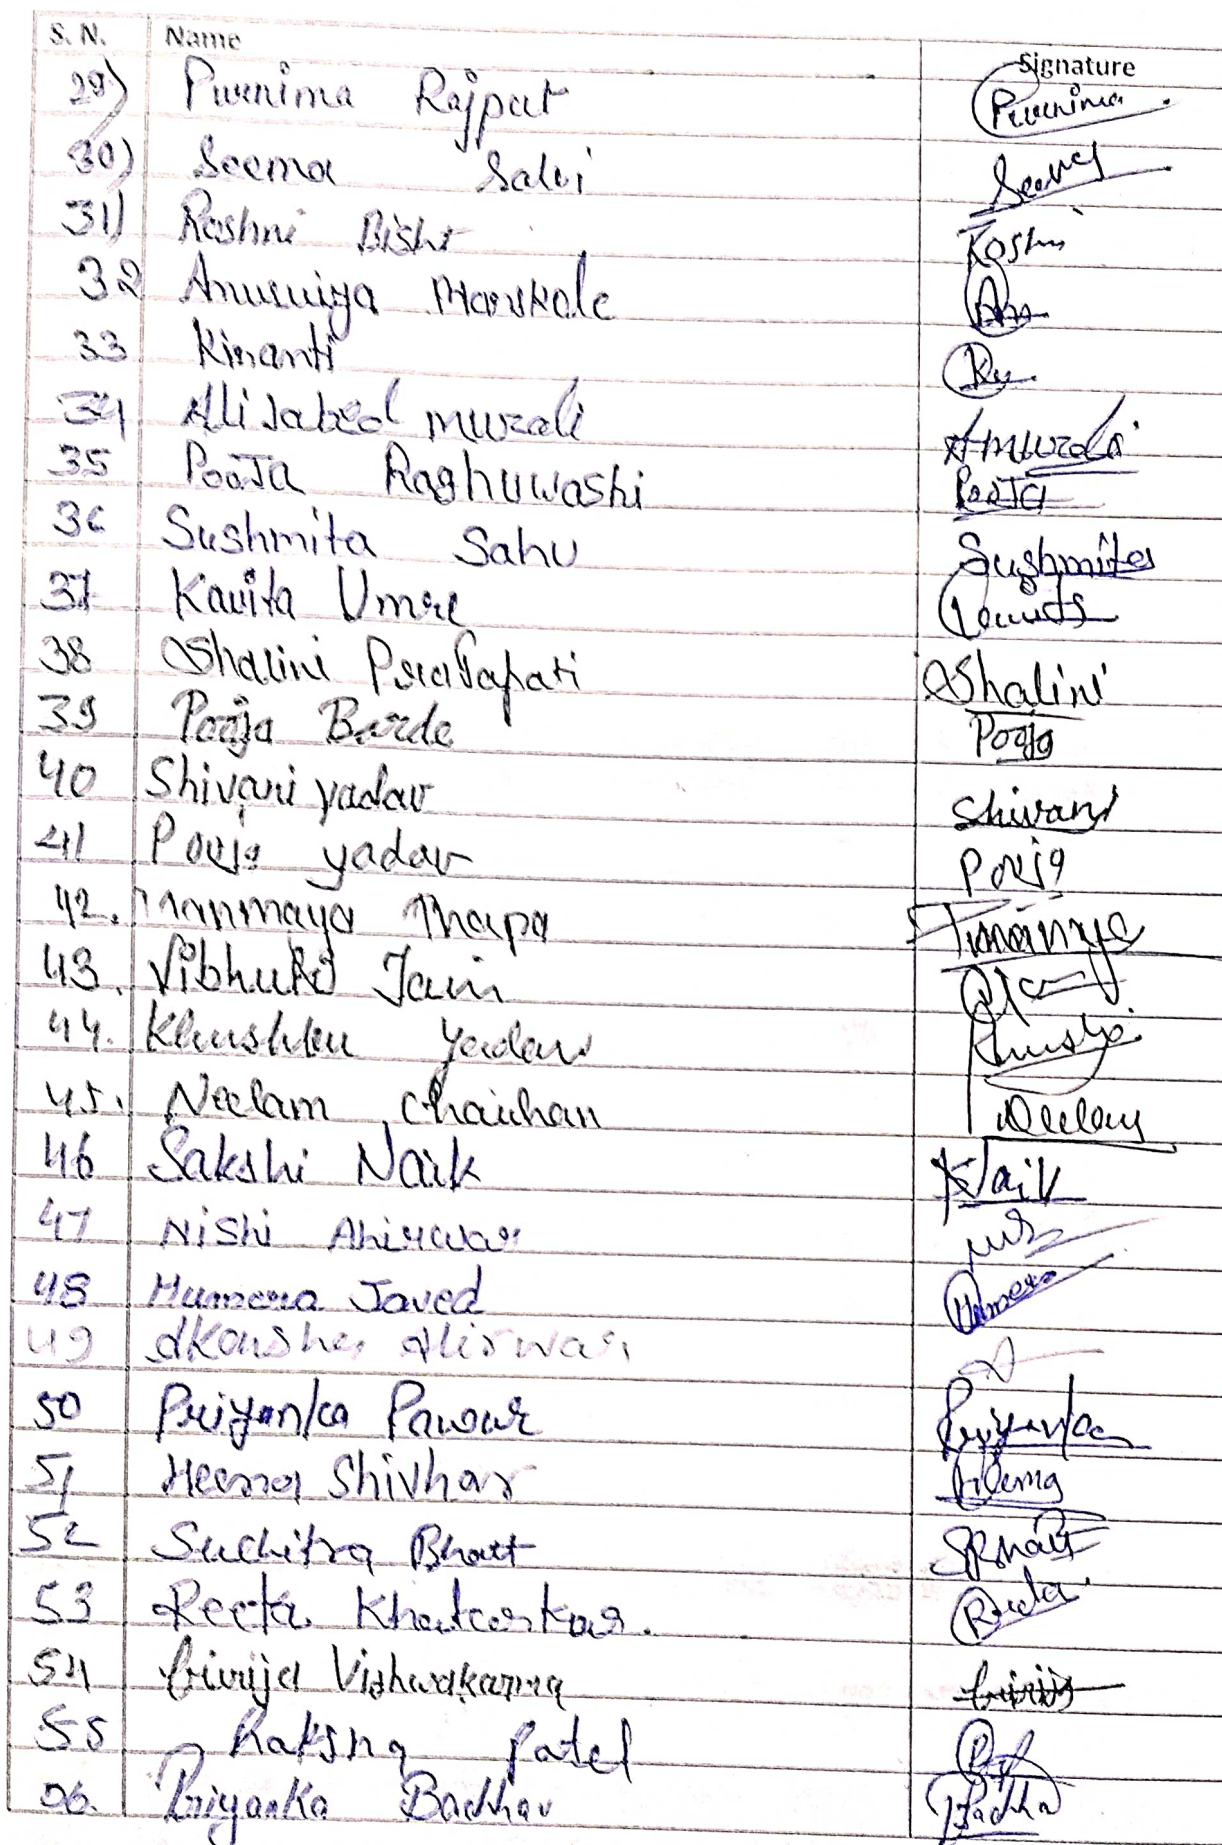 S. N. Name Signature
29) Purnima Rajput Purnima
30) Seema Salvi Seema
31) Roshni Bisht Roshni
32 Anusuiya Manskole
33 Kiranti
34 Alisabed murali Amurali
35 PooJa Raghuwashi PooJa
36 Sushmita Sahu Sushmita
37 Kavita Umre Kavita
38 Shalini Prajapati Shalini
39 Pooja Barde Pooja
40 Shivani yadav Shivani
41 Pooja yadav Pooja
42. Manmaya Thapa
43. Vibhuti Jain
44. Khushbu Yadav
45. Neelam Chauhan Neelam
46 Sakshi Naik Naik
47 Nishi Ahirwar
48 Humera Javed Humera
49 Ahirwar
50 Priyanka Pawar Priyanka
51 Heema Shivhar Heema
52 Suchitra Bhatt SBhatt
53 Reeta Khatarkar. Reeta
54 Girija Vishwakarma Girija
55 Raksha Patel
56. Priyanka Badhav